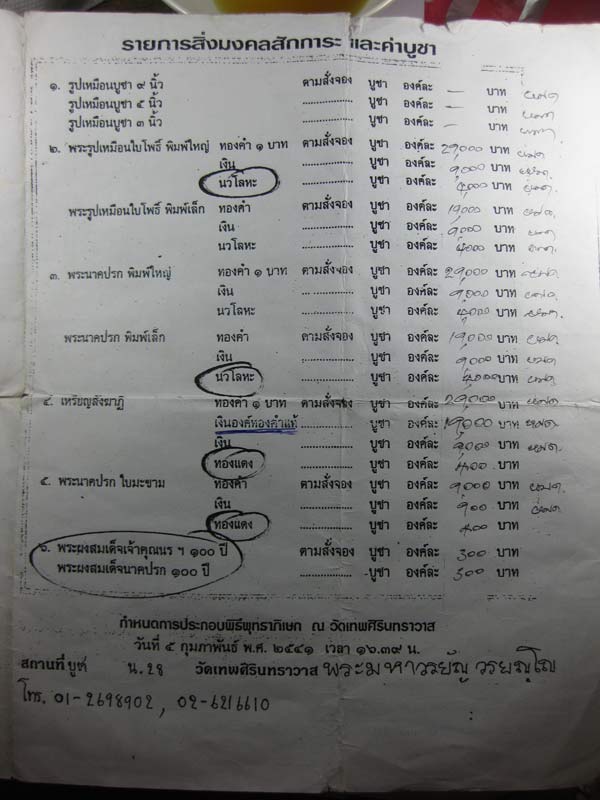 รายการสิ่งมงคลสักการะ และค่าบูชา
๑. รูปเหมือนบูชา ๙ นิ้ว ตามสั่งจอง บูชา องค์ละ – บาท หมด
รูปเหมือนบูชา ๕ นิ้ว ................ บูชา องค์ละ – บาท หมด
รูปเหมือนบูชา ๓ นิ้ว ................ บูชา องค์ละ – บาท หมด
๒. พระรูปเหมือนใบโพธิ์ พิมพ์ใหญ่ ทองคำ ๑ บาท ตามสั่งจอง บูชา องค์ละ 29,000 บาท หมด
เงิน ................ บูชา องค์ละ 9,000 บาท หมด
นวโลหะ ................ บูชา องค์ละ บาท หมด
พระรูปเหมือนใบโพธิ์ พิมพ์เล็ก ทองคำ ตามสั่งจอง บูชา องค์ละ 19,000 บาท หมด
เงิน ................ บูชา องค์ละ 9,000 บาท หมด
นวโลหะ ................ บูชา องค์ละ 4,000 บาท หมด
๓. พระนาคปรก พิมพ์ใหญ่ ทองคำ ๑ บาท ตามสั่งจอง บูชา องค์ละ 29,000 บาท หมด
เงิน ................ บูชา องค์ละ 9,000 บาท หมด
นวโลหะ ................ บูชา องค์ละ บาท หมด
พระนาคปรก พิมพ์เล็ก ทองคำ ตามสั่งจอง บูชา องค์ละ 19,000 บาท หมด
เงิน ................ บูชา องค์ละ 9,000 บาท หมด
นวโลหะ ................ บูชา องค์ละ บาท หมด
๔. เหรียญสังฆาฏิ ทองคำ ๑ บาท ตามสั่งจอง บูชา องค์ละ 29,000 บาท หมด
เงินองค์ทองคำแท้ ................ บูชา องค์ละ 19,000 บาท หมด
เงิน ................ บูชา องค์ละ บาท หมด
ทองแดง ................ บูชา องค์ละ 400 บาท
๕. พระนาคปรก ใบมะขาม ทองคำ ตามสั่งจอง บูชา องค์ละ 9,000 บาท หมด
เงิน ................ บูชา องค์ละ 900 บาท หมด
ทองแดง ................ บูชา องค์ละ บาท
๖. พระผงสมเด็จเจ้าคุณนร ฯ ๑๐๐ ปี ตามสั่งจอง บูชา องค์ละ 300 บาท
พระผงสมเด็จนาคปรก ๑๐๐ ปี ................ บูชา องค์ละ 500 บาท
กำหนดการประกอบพิธีพุทธาภิเษก ณ วัดเทพศิรินทราวาส
วันที่ ๕ กุมภาพันธ์ พ.ศ. ๒๕๔๑ เวลา ๑๖.๓๙ น.
สถานที่บูชา น.28 วัดเทพศิรินทราวาส พระมหาวรยัญ วรยญฺโญ
โทร. 01-2698902, 02-6216610